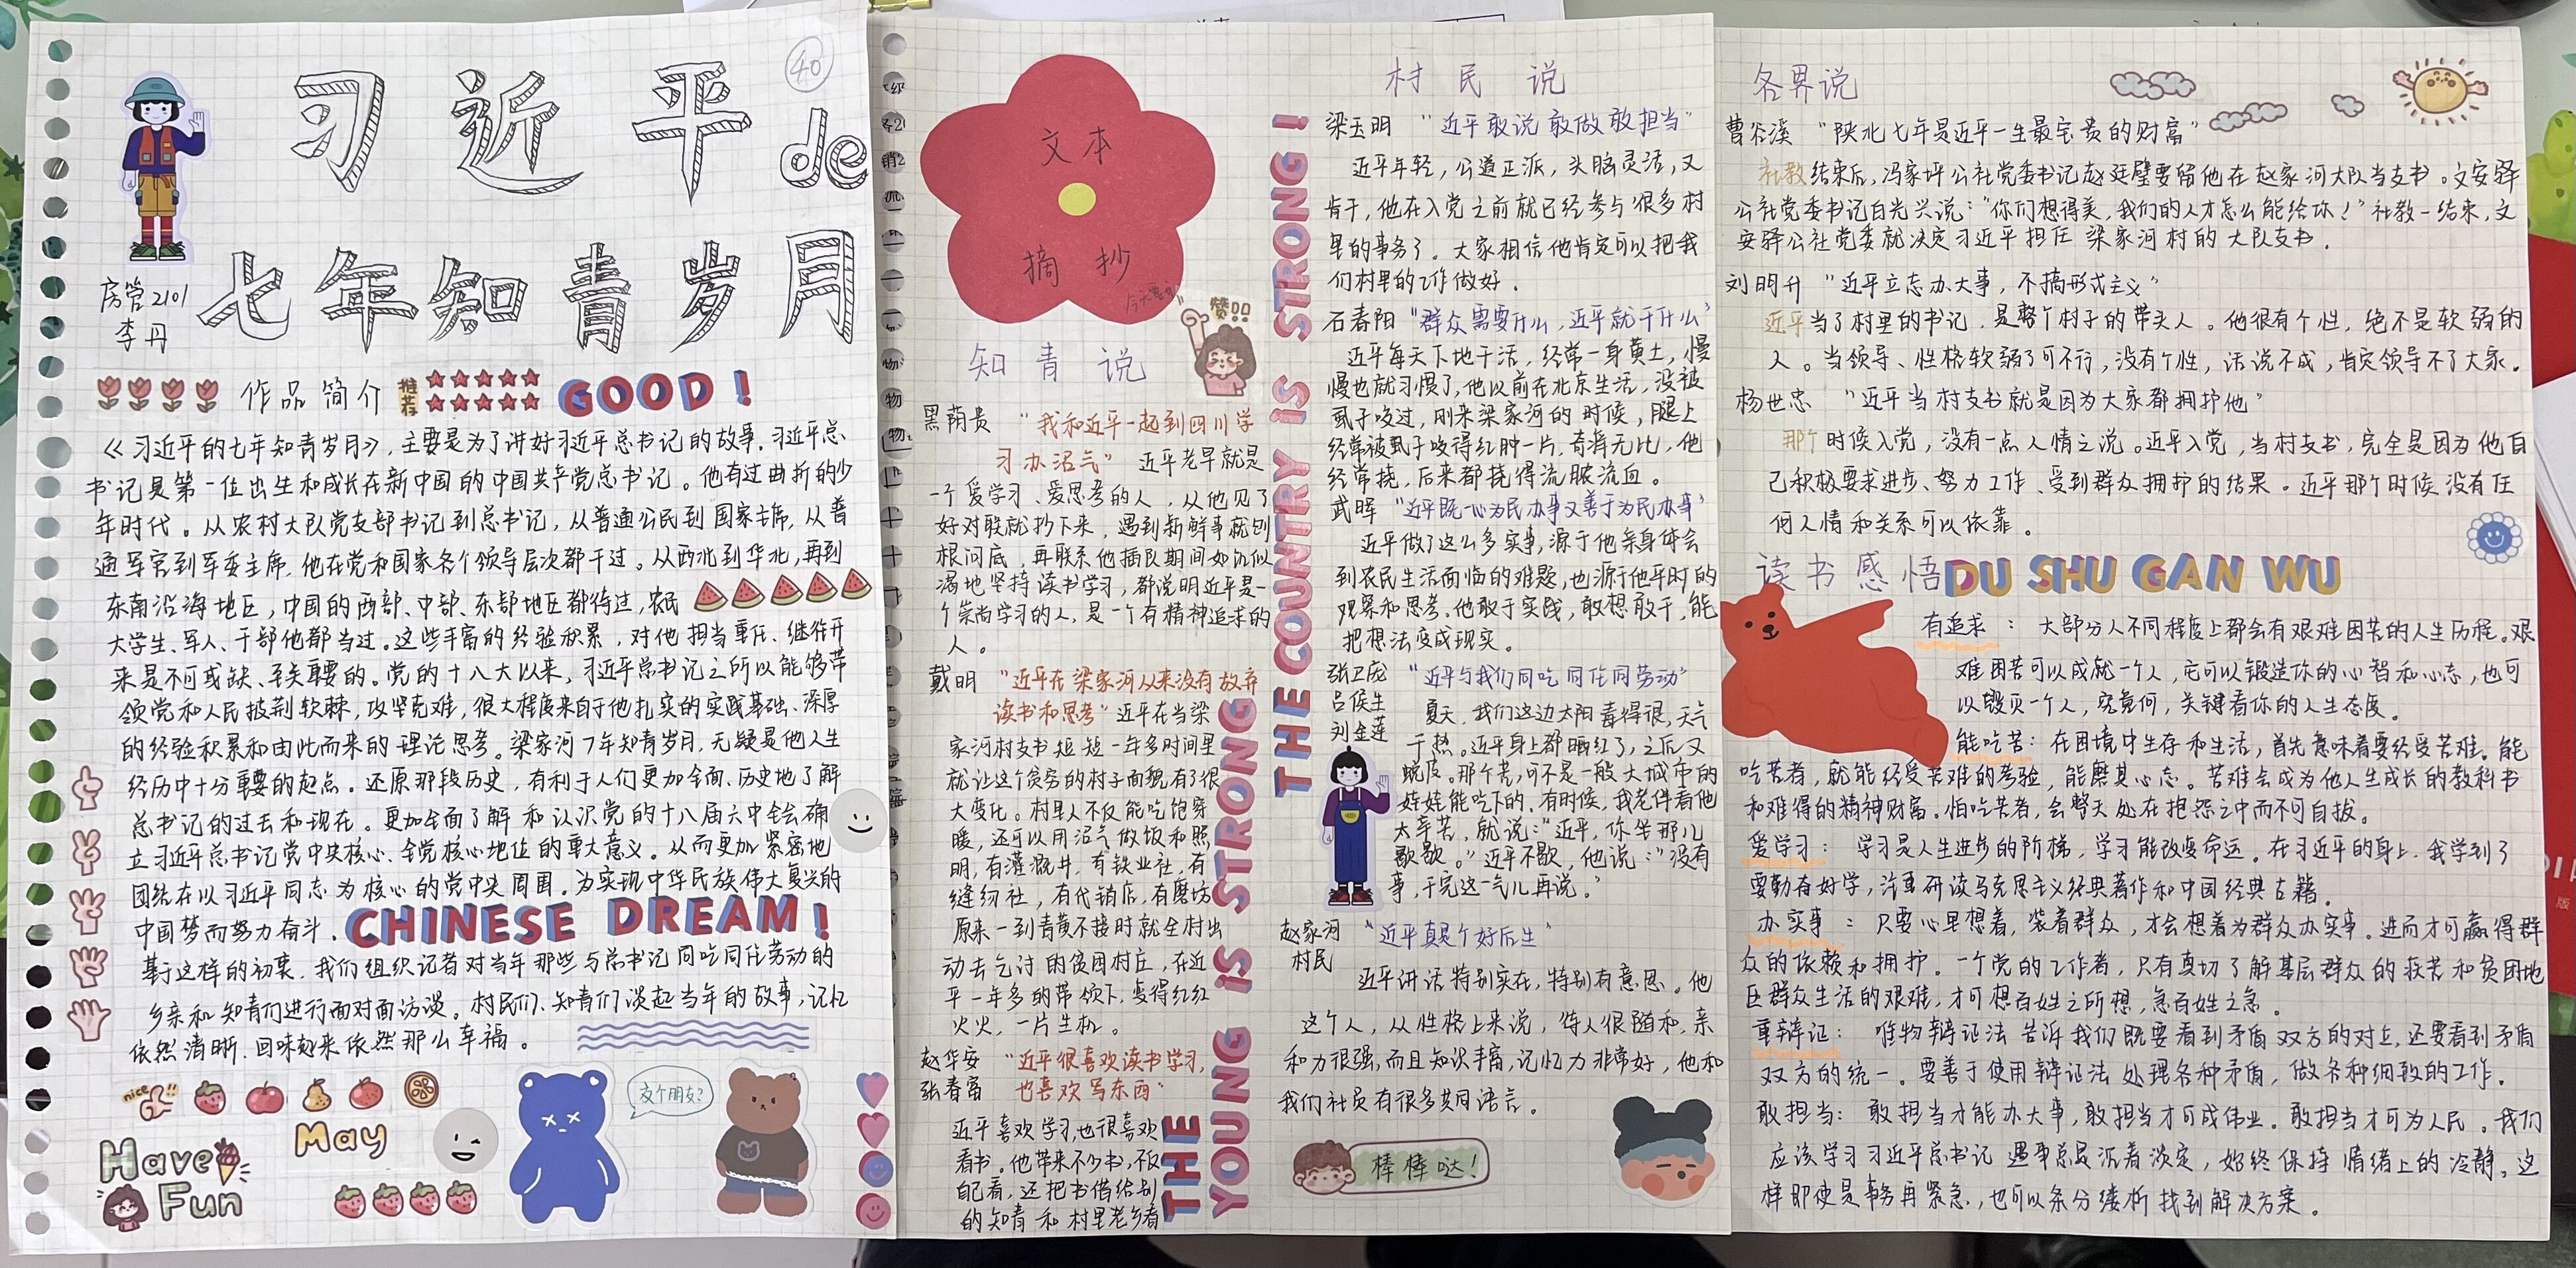 习近平de
七年知青岁月
40
房管2101
李丹
作品简介
推荐
GOOD!
《习近平的七年知青岁月》,主要是为了讲好习近平总书记的故事.习近平总
书记是第一位出生和成长在新中国的中国共产党总书记。他有过曲折的少
年时代。从农村大队党支部书记到总书记,从普通公民到国家主席,从普
通军官到军委主席.他在党和国家各个领导层次都干过。从西北到华北,再到
东南沿海地区,中国的西部、中部、东部地区都待过,农民
大学生、军人、干部他都当过。这些丰富的经验积累,对他担当重任、继往开
来是不可或缺、至关重要的。党的十八大以来,习近平总书记之所以能够带
领党和人民披荆软棘,攻坚克难,很大程度来自于他扎实的实践基础、深厚
的经验积累和由此而来的理论思考。梁家河7年知青岁月,无疑是他人生
经历中十分重要的起点。还原那段历史,有利于人们更加全面、历史地了解
总书记的过去和现在。更加全面了解和认识党的十八届六中全会确
立习近平总书记党中央核心、全党核心地位的重大意义。从而更加紧密地
团结在以习近平同志为核心的党中央周围。为实现中华民族伟大复兴的
中国梦而努力奋斗.
CHINESE DREAM!
基于这样的初衷.我们组织记者对当年那些与总书记同吃同住劳动的
乡亲和知青们进行面对面访谈。村民们、知青们谈起当年的故事,记忆
依然清晰.回味起来依然那么幸福。
nice
交个朋友?
May
Have
Fun
文本
摘抄
赞!!
知青说
黑荫贵 "我和近平一起到四川学
习办沼气" 近平老早就是
一个爱学习、爱思考的人,从他见了
好对联就抄下来,遇到新鲜事就刨
根问底,再联系他插队期间如饥似
渴地坚持读书学习,都说明近平是一
个崇尚学习的人,是一个有精神追求的
人。
戴明 "近平在梁家河从来没有放弃
读书和思考" 近平在当梁
家河村支书短短一年多时间里
就让这个贫穷的村子面貌有了很
大变化。村里人不仅能吃饱穿
暖,还可以用沼气做饭和照
明,有灌溉井,有铁业社,有
缝纫社,有代销店,有磨坊
原来一到青黄不接时就全村出
动去乞讨的贫困村庄,在近
平一年多的带领下,变得红红
火火,一片生机。
赵华安
张春富
"近平很喜欢读书学习,
也喜欢写东西"
近平喜欢学习,也很喜欢
看书。他带来不少书,不仅
自己看,还把书借给别
的知青和村里老乡看
THE YOUNG IS STRONG
THE COUNTRY IS STRONG!
村民说
梁玉明 "近平敢说敢做敢担当"
近平年轻,公道正派,头脑灵活,又
肯干,他在入党之前就已经参与很多村
里的事务了。大家相信他肯定可以把我
们村里的工作做好.
石春阳 "群众需要什么,近平就干什么"
近平每天下地干活,经常一身黄土,慢
慢也就习惯了,他以前在北京生活,没被
虱子咬过,刚来梁家河的时候,腿上
经常被虱子咬得红肿一片,奇痒无比,他
经常挠,后来都挠得流脓流血。
武晖 "近平既一心为民办事又善于为民办事"
近平做了这么多实事,源于他亲身体会
到农民生活面临的难题,也源于他平时的
观察和思考.他敢于实践,敢想敢干,能
把想法变成现实。
张卫庞
吕侯生
刘金莲
"近平与我们同吃同住同劳动"
夏天,我们这边太阳毒得很,天气
干热。近平身上都晒红了,之后又
蜕皮。那个苦,可不是一般大城市的
娃娃能吃下的.有时候,我老伴看他
太辛苦,就说:"近平,你坐那儿
歇歇。"近平不歇,他说:"没有
事,干完这一气儿再说。"
赵家河
村民
"近平真是个好后生"
近平讲话特别实在,特别有意思。他
这个人,从性格上来说,待人很随和,亲
和力很强,而且知识丰富,记忆力非常好,他和
我们社员有很多共同语言。
棒棒哒!
各界说
曹谷溪 "陕北七年是近平一生最宝贵的财富"
社教结束后,冯家坪公社党委书记赵廷璧要留他在赵家河大队当支书。文安驿
公社党委书记白光兴说:"你们想得美,我们的人才怎么能给你!"社教一结束,文
安驿公社党委就决定习近平担任梁家河村的大队支书.
刘明升 "近平立志办大事,不搞形式主义"
近平当了村里的书记,是整个村子的带头人。他很有个性,绝不是软弱的
人。当领导、性格软弱了可不行,没有个性,话说不成,肯定领导不了大家.
杨世忠 "近平当村支书就是因为大家都拥护他"
那个时候入党,没有一点人情之说。近平入党,当村支书,完全是因为他自
己积极要求进步、努力工作、受到群众拥护的结果。近平那个时候没有任
何人情和关系可以依靠。
读书感悟DU SHU GAN WU
有追求:大部分人不同程度上都会有艰难困苦的人生历程。艰
难困苦可以成就一个人,它可以锻造你的心智和心态,也可
以毁灭一个人,究竟何,关键看你的人生态度。
能吃苦:在困境中生存和生活,首先意味着要经受苦难。能
吃苦者,就能经受苦难的考验,能磨其心志。苦难会成为他人生成长的教科书
和难得的精神财富。怕吃苦者,会整天处在抱怨之中而不可自拔。
爱学习:学习是人生进步的阶梯,学习能改变命运。在习近平的身上.我学到了
要勤奋好学,注重研读马克思主义经典著作和中国经典古籍。
办实事:只要心里想着,装着群众,才会想着为群众办实事。进而才可赢得群
众的依赖和拥护。一个党的工作者,只有真切了解基层群众的疾苦和贫困地
区群众生活的艰难,才可想百姓之所想,急百姓之急。
重辩证:唯物辩证法告诉我们既要看到矛盾双方的对立,还要看到矛盾
双方的统一。要善于使用辩证法处理各种矛盾,做各种细致的工作.
敢担当:敢担当才能办大事,敢担当才可成伟业。敢担当才可为人民。我们
应该学习习近平总书记遇事总是沉着淡定,始终保持情绪上的冷静。这
样即使是事务再紧急,也可以条分缕析找到解决方案。